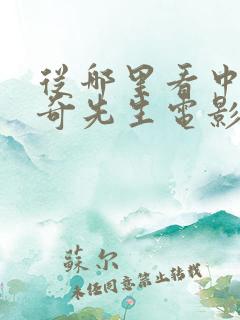 從哪里看中
奇先生電影
蘇尔
未经同意禁止转载